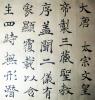 大唐太宗文皇
帝製三藏聖教
序盖聞二儀有
象顯覆載以含
生四時無形潛